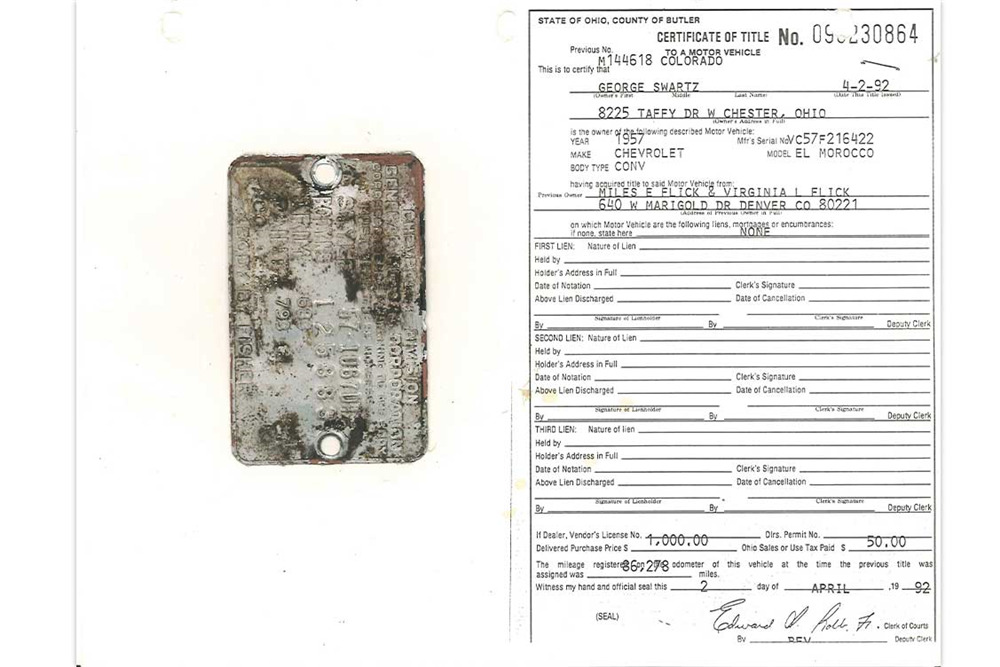 STATE OF OHIO, COUNTY OF BUTLER
CERTIFICATE OF TITLE No. 230864
Previous No. TO A MOTOR VEHICLE
M144618 COLORADO
This is to certify that
GEORGE SWARTZ 4-2-92
(Owner's First Middle Last Name) (Date This Title Issued)
8225 TAFFY DR W CHESTER, OHIO
(Owner's Address in Full)
is the owner of the following described Motor Vehicle:
YEAR 1957 Mfr's Serial No VC57F216422
MAKE CHEVROLET MODEL EL MOROCCO
BODY TYPE CONV
having acquired title to said Motor Vehicle from:
Previous Owner MILES E FLICK & VIRGINIA L FLICK
640 W MARIGOLD DR DENVER CO 80221
(Address of Previous Owner in Full)
on which Motor Vehicle are the following liens, mortgages or encumbrances:
if none, state here NONE
FIRST LIEN: Nature of Lien
Held by
Holder's Address in Full
Date of Notation Clerk's Signature
Above Lien Discharged Date of Cancellation
Signature of Lienholder Clerk's Signature
By By Deputy Clerk
SECOND LIEN: Nature of Lien
Held by
Holder's Address in Full
Date of Notation Clerk's Signature
Above Lien Discharged Date of Cancellation
Signature of Lienholder Clerk's Signature
By By Deputy Clerk
THIRD LIEN: Nature of lien
Held by
Holder's Address in Full
Date of Notation Clerk's Signature
Above Lien Discharged Date of Cancellation
Signature of Lienholder Clerk's Signature
By By Deputy Clerk
If Dealer, Vendor's License No. Dlrs. Permit No.
Delivered Purchase Price $ 1,000.00 Ohio Sales or Use Tax Paid $ 50.00
The mileage registered on the odometer of this vehicle at the time the previous title was
assigned was 86,278 miles.
Witness my hand and official seal this 2 day of APRIL ,19 92
(SEAL) Edward Clerk of Courts
By BEV Deputy Clerk